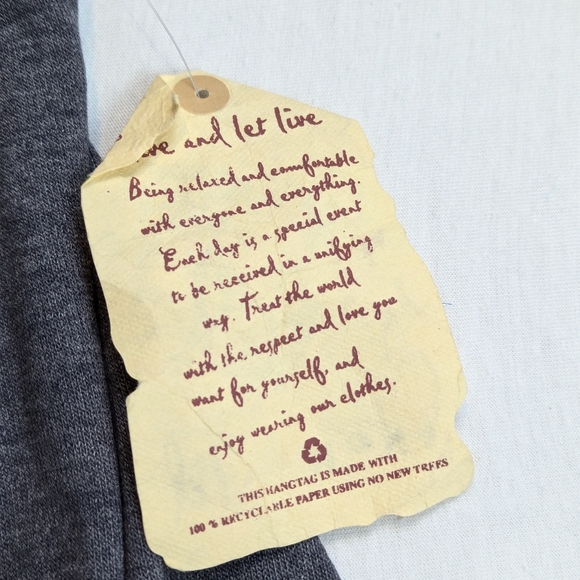 Live and let live
Being relaxed and comfortable
with everyone and everything.
Each day is a special event
to be received in a unifying
way. Treat the world
with the respect and love you
want for yourself, and
enjoy wearing our clothes.
THIS HANGTAG IS MADE WITH
100 % RECYCLABLE PAPER USING NO NEW TREES